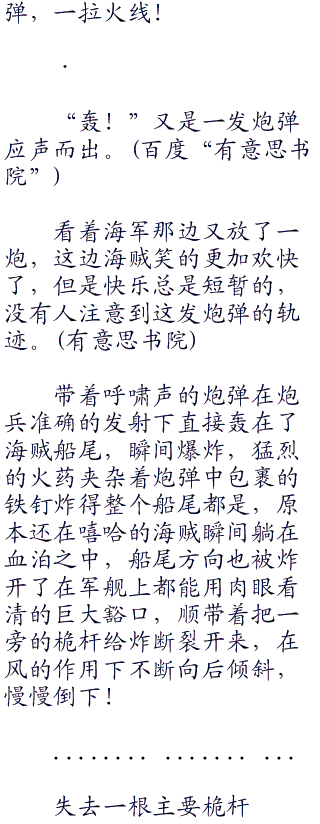 弹，一拉火线！
.
“轰！”又是一发炮弹
应声而出。(百度“有意思书
院”)
看着海军那边又放了一
炮，这边海贼笑的更加欢快
了，但是快乐总是短暂的，
没有人注意到这发炮弹的轨
迹。(有意思书院)
带着呼啸声的炮弹在炮
兵准确的发射下直接轰在了
海贼船尾，瞬间爆炸，猛烈
的火药夹杂着炮弹中包裹的
铁钉炸得整个船尾都是，原
本还在嘻哈的海贼瞬间躺在
血泊之中，船尾方向也被炸
开了在军舰上都能用肉眼看
清的巨大豁口，顺带着把一
旁的桅杆给炸断裂开来，在
风的作用下不断向后倾斜，
慢慢倒下！
........ ....... ...
失去一根主要桅杆